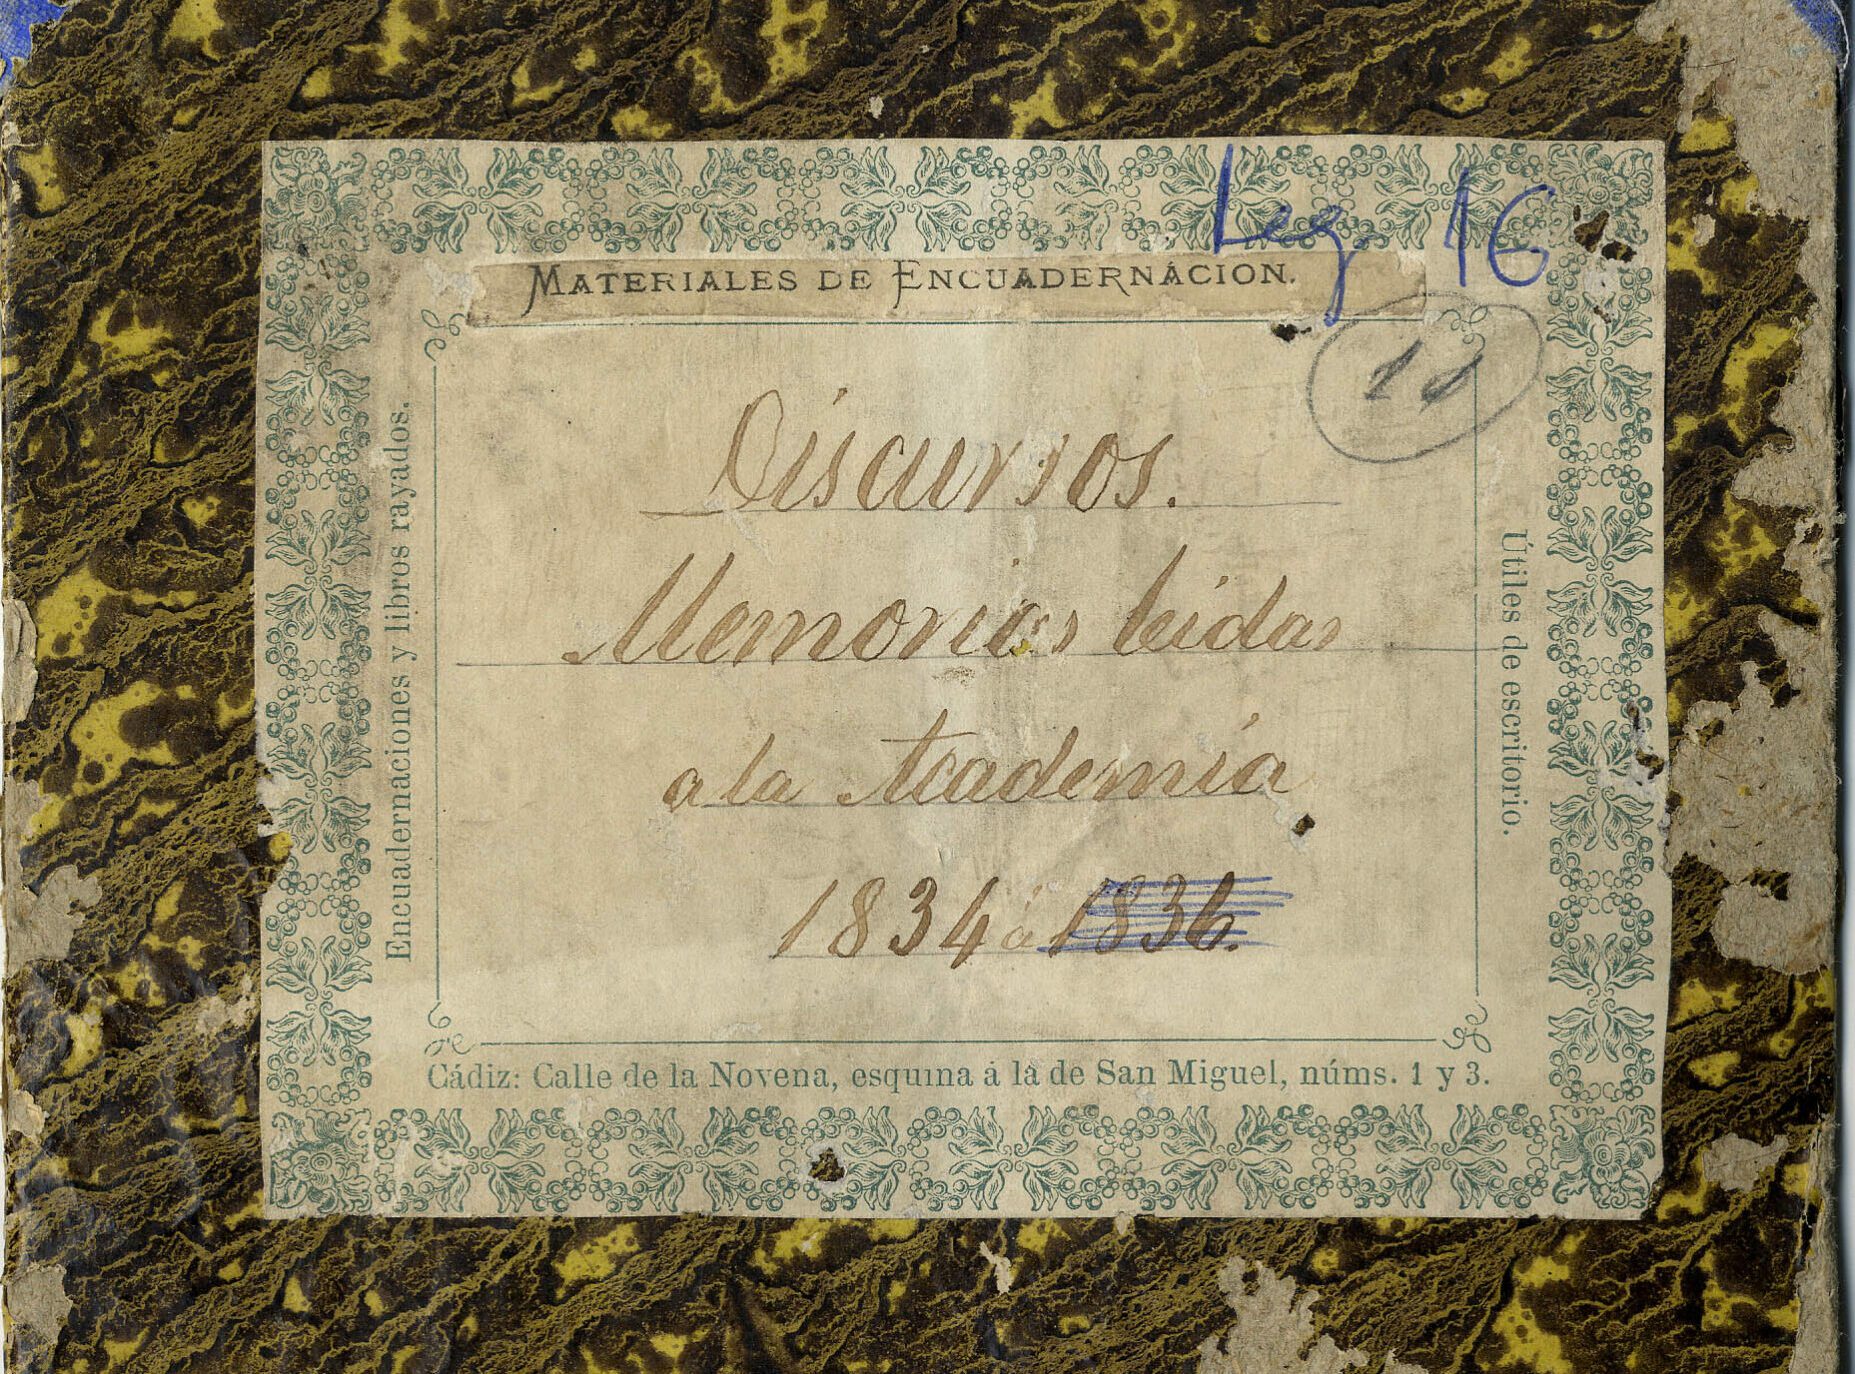 Leg. 16
MATERIALES DE ENCUADERNACION.
11
Discursos.
Memorias leidas
a la Academia
1834 á 1836.
Encuadernaciones y libros rayados.
Útiles de escritorio.
Cádiz: Calle de la Novena, esquina á la de San Miguel, núms. 1 y 3.